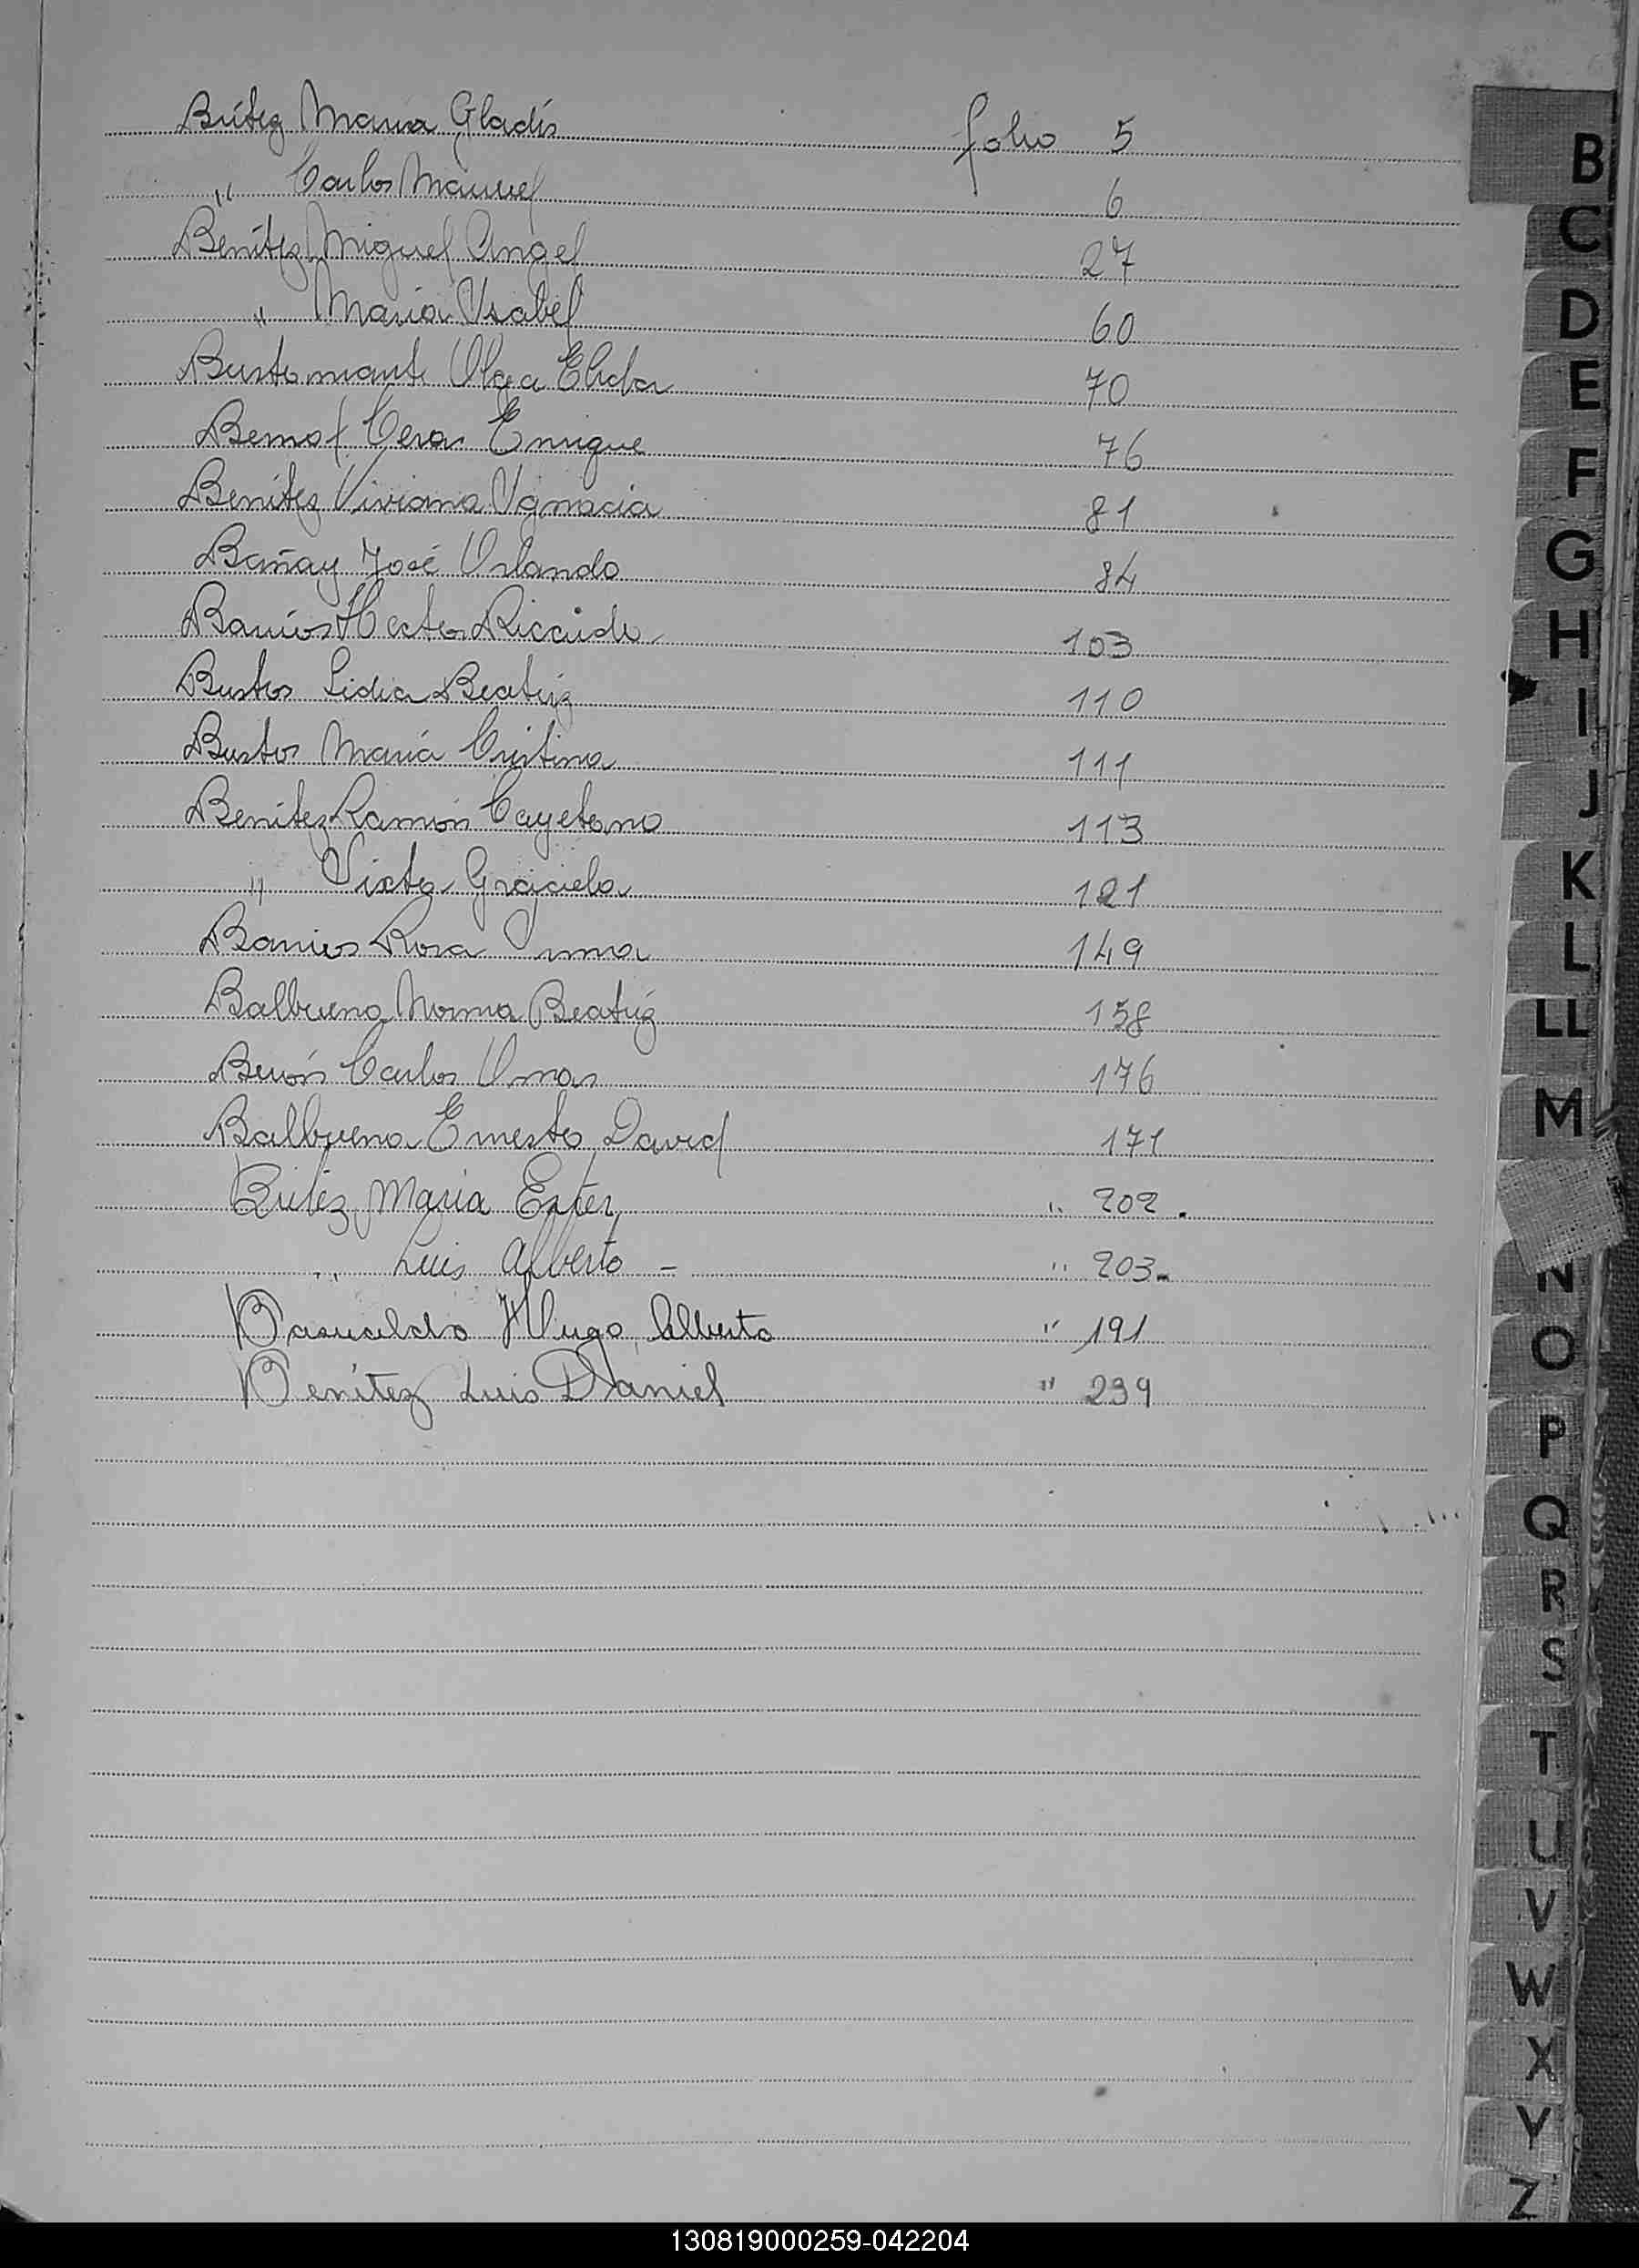 Britez Maria Gladis folio 5
" Carlos Manuel 6
Benítez Miguel Angel 27
" Maria Ysabel 60
Bustamante Olga Elida 70
Cesar Enrique 76
Benítez Viviana Ygnacia 81
José Orlando 84
Barrios Hector Ricardo 103
Bustos Lidia Beatriz 110
Bustos María Cristina 111
Benitez Ramón Cayetano 113
" Sixta Graciela 121
Barrios Rosa Irma 149
Balbuena Norma Beatriz 158
Carlos Omar 176
Balbuena Ernesto David 171
Britez Maria Ester " 202.
" Luis Alberto - " 203-
Basualdo Hugo Alberto " 191
Benítez Luis Daniel " 239
B
C
D
E
F
G
H
I
J
K
L
LL
M
N
O
P
Q
R
S
T
U
V
W
X
Y
Z
130819000259-042204